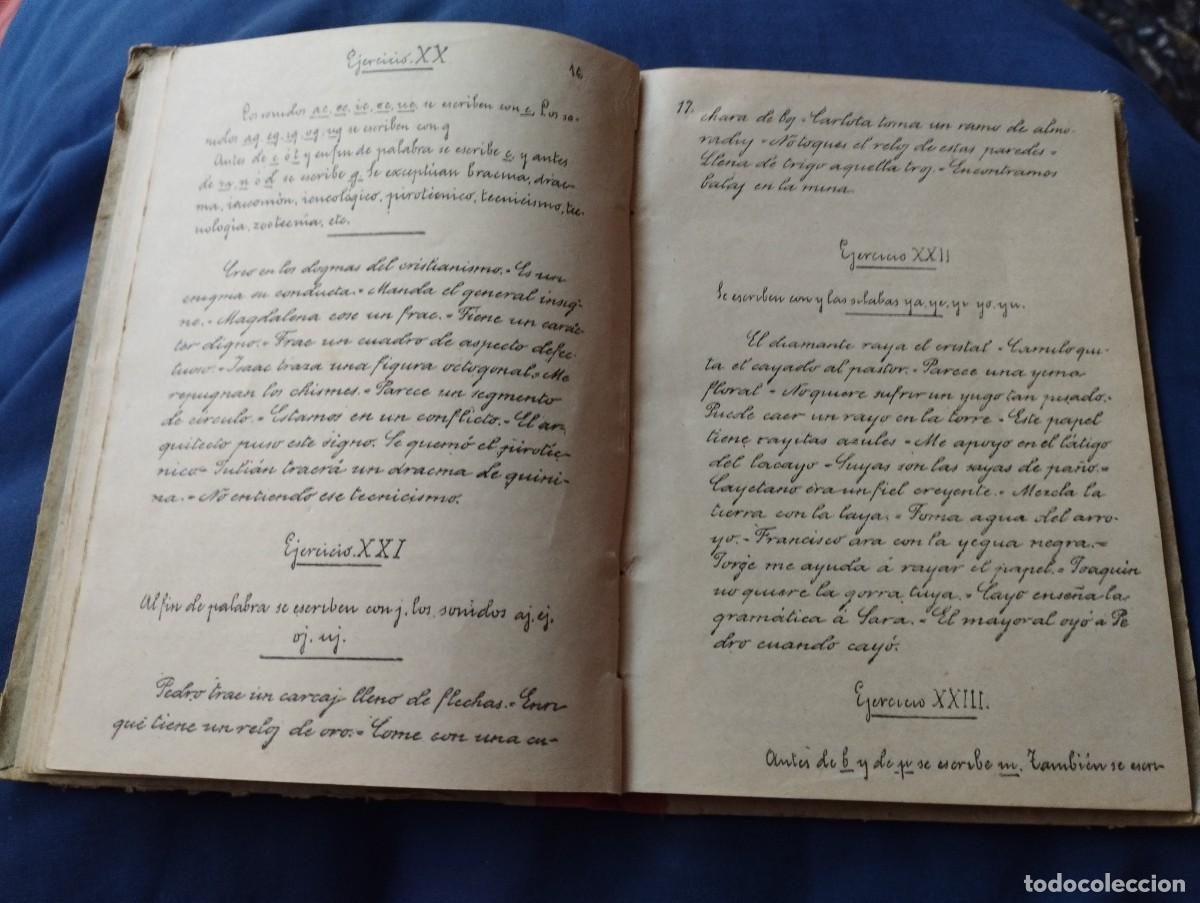 Ejercicio XX
16
Los sonidos ac, ec, ic, oc, uc, se escriben con c. Los so-
nidos ag, eg, ig, og, ug se escriben con g
Antes de c ó t y en fin de palabra se escribe c, y antes
de m, n ó d se escribe g. Se exceptúan bracma, drac-
ma, iacomón, icneológico, pirotécnico, tecnicismo, tec-
nología, zootecnia, etc.
Creo en los dogmas del cristianismo.=Es un
enigma su conducta.=Manda el general insig-
ne.=Magdalena cose un frac.=Tiene un carác-
ter digno.=Trae un cuadro de aspecto defec-
tuoso.=Isaac traza una figura octogonal.=Me
repugnan los chismes.=Parece un segmento
de círculo.=Estamos en un conflicto.=El ar-
quitecto puso este signo. Se quemó el pirotéc-
nico=Julián traerá un dracma de quini-
na.=No entiendo ese tecnicismo.
Ejercicio XXI
Al fin de palabra se escriben con j, los sonidos aj, ej,
oj, uj.
Pedro trae un carcaj lleno de flechas.=Enri
que tiene un reloj de oro.=Come con una cu-
17.
chara de boj=Carlota toma un ramo de almo-
raduj=No toques el reloj de estas paredes=
Llena de trigo aquella troj.=Encontramos
balaj en la mina
Ejercicio XXII
Se escriben con y las sílabas ya, ye, yi yo, yu.
El diamante raya el cristal=Camilo qui-
ta el cayado al pastor.=Parece una yema
floral=No quiere sufrir un yugo tan pesado.=
Puede caer un rayo en la torre=Este papel
tiene rayitas azules=Me apoyo en el látigo
del lacayo=Suyas son las sayas de paño.=
Cayetano era un fiel creyente.=Mezcla la
tierra con la laya.=Toma agua del arro-
yo.-Francisco ara con la yegua negra.=
Jorge me ayuda á rayar el papel.=Joaquín
no quiere la gorra tuya.=Cayo enseña la
gramática á Sara.=El mayoral oyó á Pe
dro cuando cayó.
Ejercicio XXIII.
Antes de b y de p se escribe m. También se escri-
todocoleccion